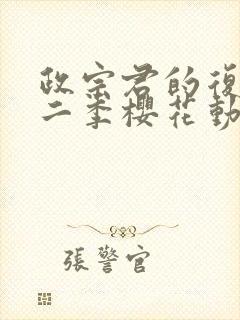 政宗君的復
二季櫻花動
張警官